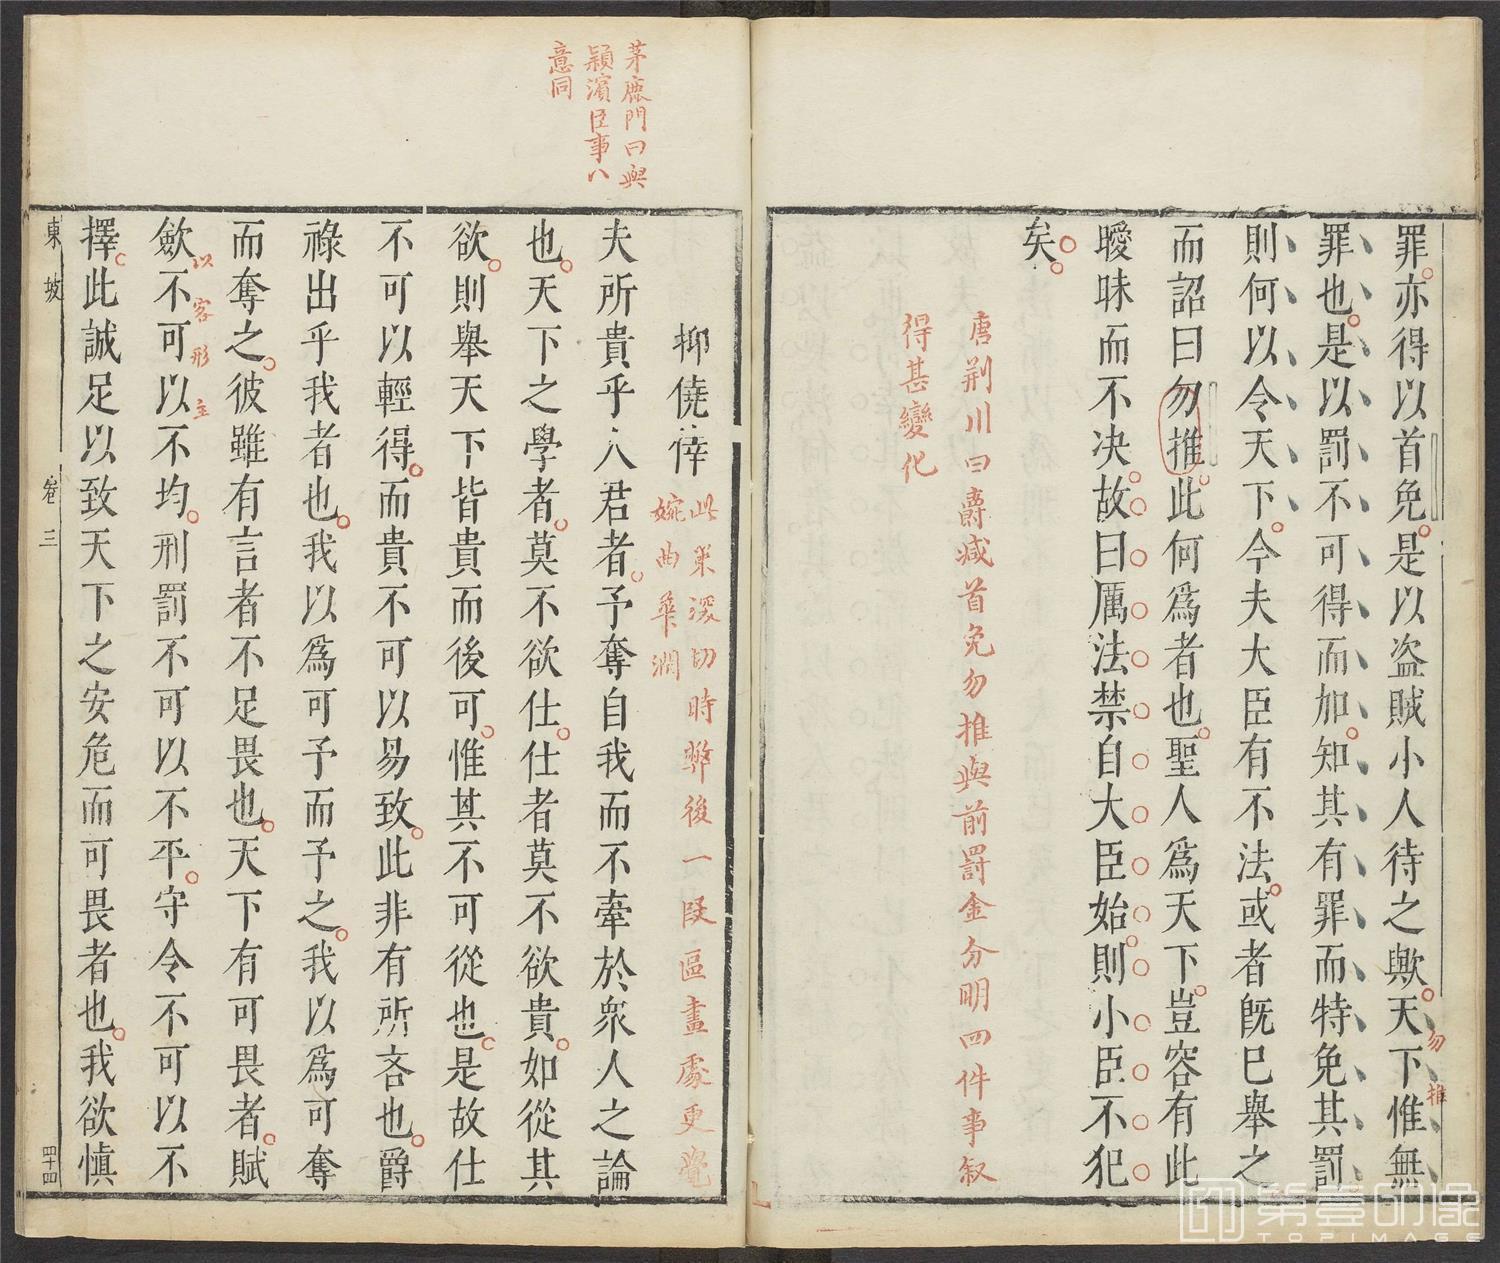 罪亦得以首免是以盗賊小人待之歟天下惟無
勿推
罪也是以罰不可得而加知其有罪而特免其罰
則何以令天下今夫大臣有不法或者既巳舉之
而詔曰勿推此何爲者也聖人爲天下豈容有此
曖昧而不决故曰厲法禁自大臣始則小臣不犯
矣
唐荆川曰爵减首免勿推與前罰金分明四件事叙
得甚變化
茅鹿門曰與
穎濱臣事八
意同
抑僥倖
此策深切時弊後一段區畫處更覺
婉曲華潤
夫所貴乎人君者予奪自我而不牽於衆人之論
也天下之學者莫不欲仕仕者莫不欲貴如從其
欲則舉天下皆貴而後可惟其不可從也是故仕
不可以輕得而貴不可以易致此非有所吝也爵
祿出乎我者也我以爲可予而予之我以爲可奪
而奪之彼雖有言者不足畏也天下有可畏者賦
以客形主
歛不可以不均刑罰不可以不平守令不可以不
擇此誠足以致天下之安危而可畏者也我欲慎
東坡
卷三
四十四
第壹印像
TOPIMAGE